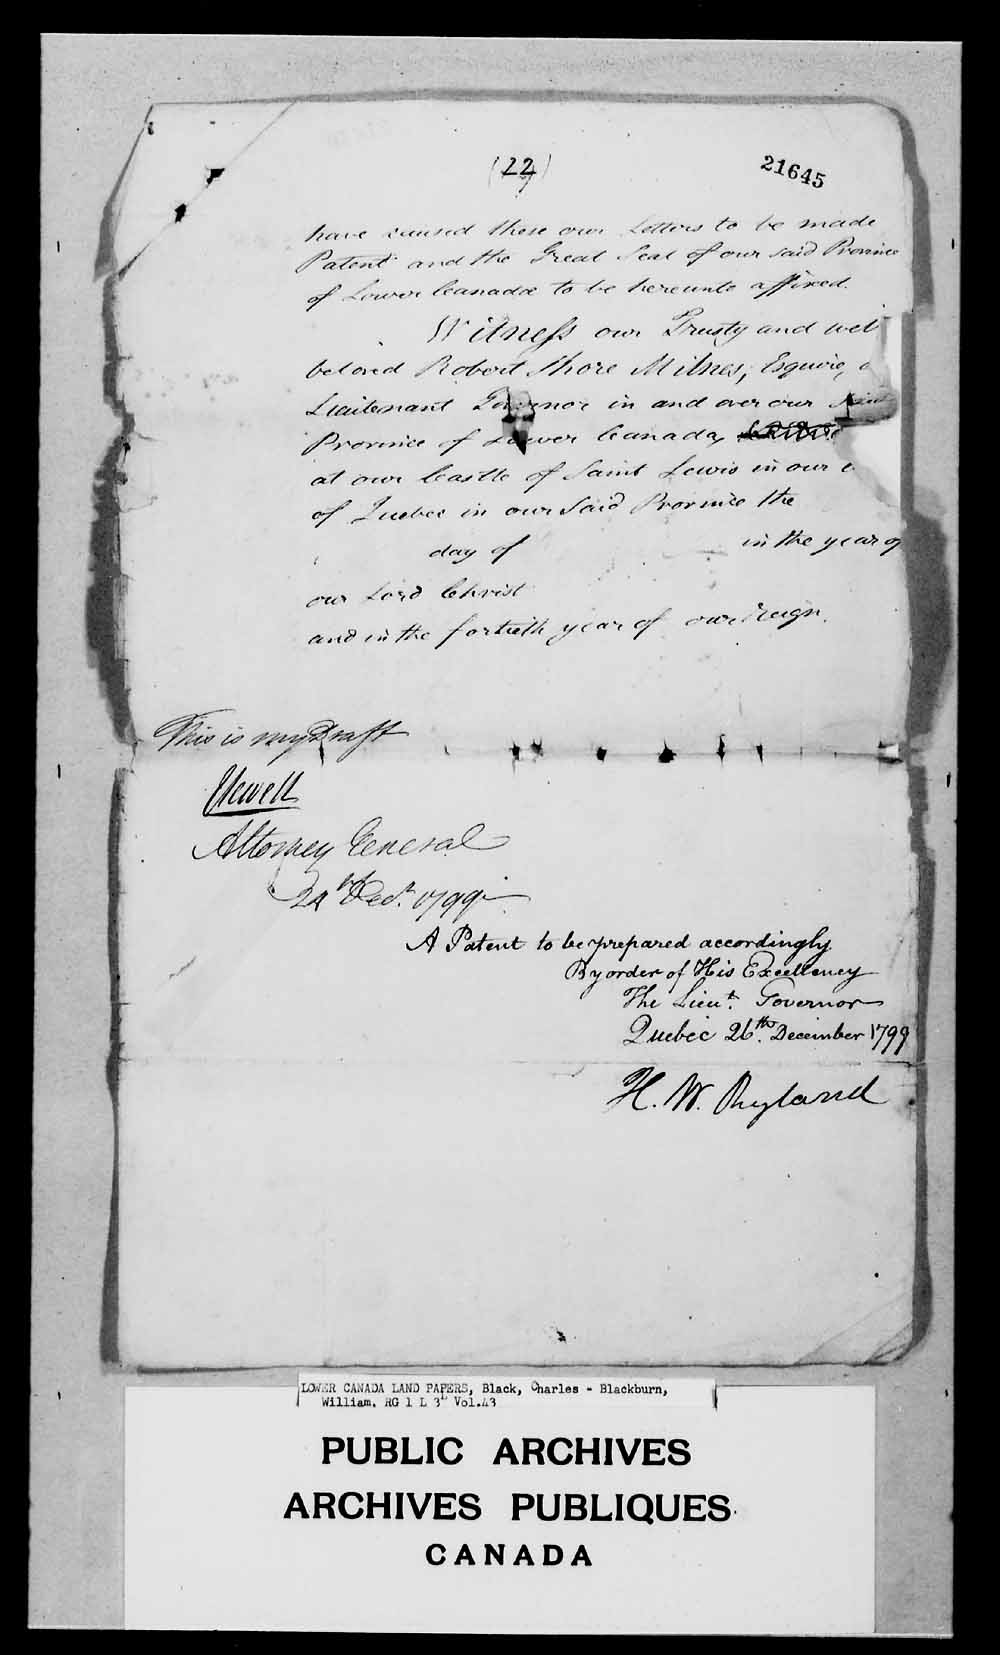 (22)
21645
have caused these our Letters to be made
Patent and the Great Seal of our said Province
of Lower Canada to be hereunto affixed.
Witness our Trusty and well
beloved Robert Shore Milnes, Esquire,
Lieutenant Governor in and over our said
Province of Lower Canada,
at our Castle of Saint Lewis in our
of Quebec in our said Province the
day of in the year of
our Lord Christ
and in the fortieth year of our Reign.
This is my Draft
JSewell
Attorney General
24th Decr. 1799
A Patent to be prepared accordingly
By order of His Excellency
The Lieut. Governor
Quebec 26th. December 1799
H. W. Ryland
LOWER CANADA LAND PAPERS, Black, Charles - Blackburn,
William. RG 1 L 3L Vol.43
PUBLIC ARCHIVES
ARCHIVES PUBLIQUES
CANADA